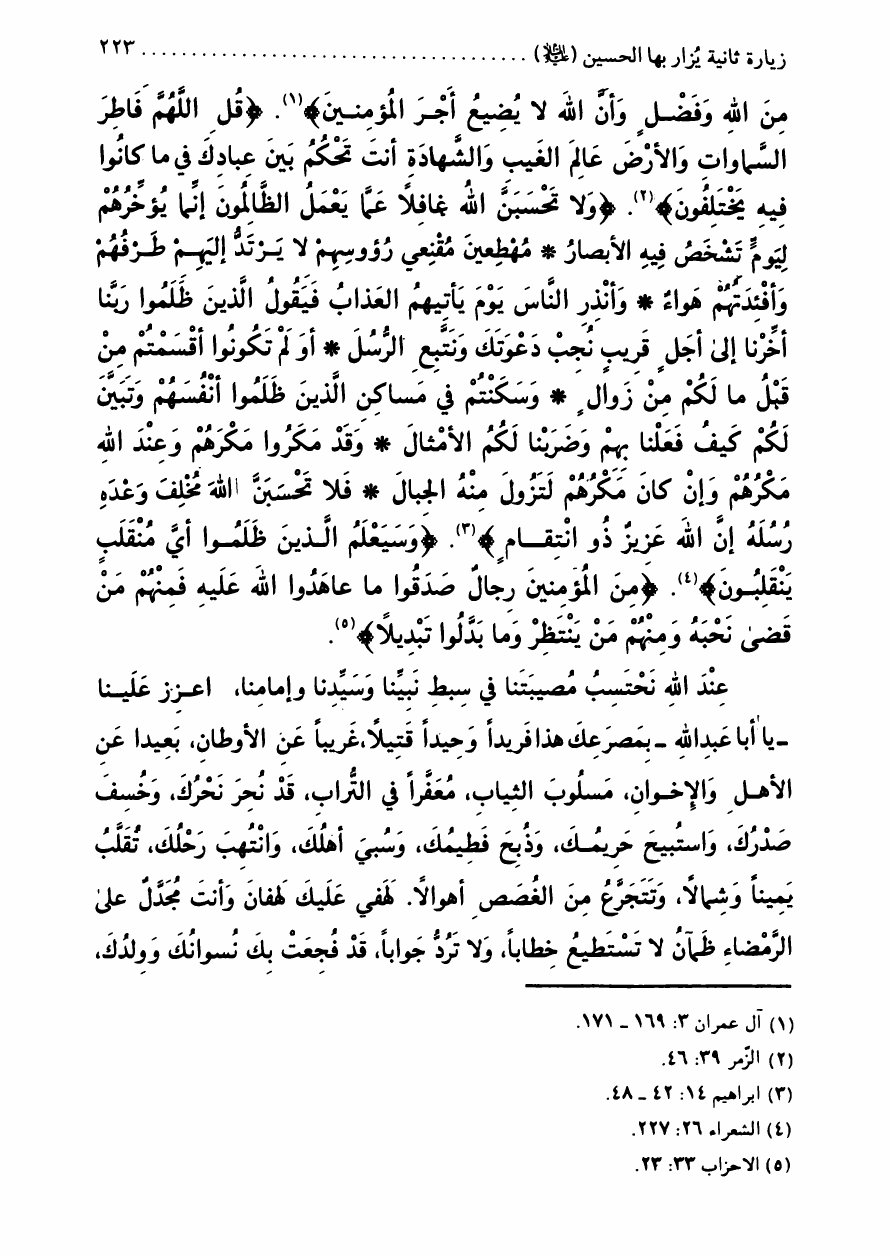 زيارة ثانية يُزار بها الحسين (عليه السلام) ....................................... ٢٢٣
مِنَ اللهِ وَفَضْـلٍ وَأَنَّ اللهَ لا يُضِيعُ أَجْـرَ المُؤمِنـينَ﴾(١). ﴿قُلِ اللَّهُمَّ فَاطِرَ
السَّماواتِ وَالأرْضَ عَالِمَ الغَيبِ وَالشَّهادَةِ أنتَ تَحْكُمُ بَينَ عِبادِكَ في ما كانُوا
فِيهِ يَخْتَلِفُونَ﴾(٢). ﴿وَلا تَحْسَبَنَّ اللهُ غافِلاً عَمَّا يَعْمَلُ الظَّالمُونَ إنَّما يُؤخِّرُهُمْ
لِيَومٍّ تَشْخَصُ فِيهِ الأبصارُ * مُهْطِعينَ مُقْنِعي رُؤوسِهِمْ لا يَـرْتَدُّ إليَهِـمْ طَـرْفُهُمْ
وَأفْئِدَتُهُمْ هَواءٌ * وَأنْذِرِ النَّاسَ يَوْمَ يَأتيهمُ العَذابُ فَيَقُولُ الَّذينَ ظَلَمُوا رَبَّنا
أخِّرْنا إلىٰ أجَلٍ قَريبٍ نُجِبْ دَعْوَتَكَ وَنَتَّبِعِ الرُّسُلَ * أوَ لَمْ تَكُونُوا أقْسَمْتُمْ مِنْ
قَبْلُ ما لَكُمْ مِنْ زَوالٍ * وَسَكَنْتُمْ في مَساكِنِ الَّذينَ ظَلَمُوا أنْفُسَهُمْ وَتَبَيَّنَ
لَكُمْ كَيفُ فَعَلْنا بِهِمْ وَضَرَبْنا لَكُمُ الأمْثالَ * وَقَدْ مَكَرُوا مَكْرَهُمْ وَعِنْدَ اللهِ
مَكْرُهُمْ وَإنْ كانَ مَكْرُهُمْ لَتَزُولَ مِنْهُ الجِبالَ * فَلا تَحْسَبَنَّ اللهَ مُخْلِفَ وَعْدَهِ
رُسُلَهُ إنَّ اللهَ عَزيزٌ ذُو انْتِقـــامٍ﴾(٣). ﴿وَسَيَعْلَمُ الَّـذينَ ظَلَمُــوا أيَّ مُنْقَلَبٍ
يَنْقَلِبُـونَ﴾(٤). ﴿مِنَ المُؤمِنينَ رِجالٌ صَدَقُوا ما عاهَدُوا اللهَ عَلَيهِ فَمِنْهُمْ مَنْ
قَضىٰ نَحْبَهُ وَمِنْهُمْ مَنْ يَنْتَظِرْ وَما بَدَّلُوا تَبْدِيلاً﴾(٥).
عِنْدَ اللهِ نَحْتَسِبُ مُصيبَتَنا في سِبطِ نَبِيِّنا وَسَيِّدِنا وإمامِنا، اعـزِز عَلَيـنا
-يا أبا عَبدِاللهِ - بِمَصرَعِكَ هذا فَريداً وَحيداً قَتِيلاً، غَريباً عَنِ الأوطانِ، بَعيدا عَنِ
الأهـلِ وَالإخـوانِ، مَسلُوبَ الثيابِ، مُعَفَّراً في التُّرابِ، قَدْ نُحِرَ نَحْرُكَ، وَخُسِفَ
صَدْرُكَ، وَاستُبِيحَ حَريمُـكَ، وَذُبِحَ فَطِيمُكَ، وَسُبيَ أهلُكَ، وَانْتُهِبَ رَحْلُكَ، تُقَلَّبُ
يَمِيناً وَشِمالًا، وَتَتَجَرَّعُ مِنَ الغُصَصِ أهوالًا. لَهْفي عَلَيكَ لَهْفانَ وَأنتَ مُجَدَّلٌ علىٰ
الرَّمْضاءِ ظَمآنُ لا تَسْتَطيعُ خِطاباً، وَلا تَرُدُّ جَواباً، قَد فُجِعَتْ بِكَ نُسوانُكَ وَوِلدُكَ،
(١) آل عمران ٣: ١٦٩ ـ ١٧١.
(٢) الزّمر ٣٩: ٤٦.
(٣) ابراهيم ١٤: ٤٢ ـ ٤٨.
(٤) الشعراء ٢٦: ٢٢٧.
(٥) الاحزاب ٣٣: ٢٣.